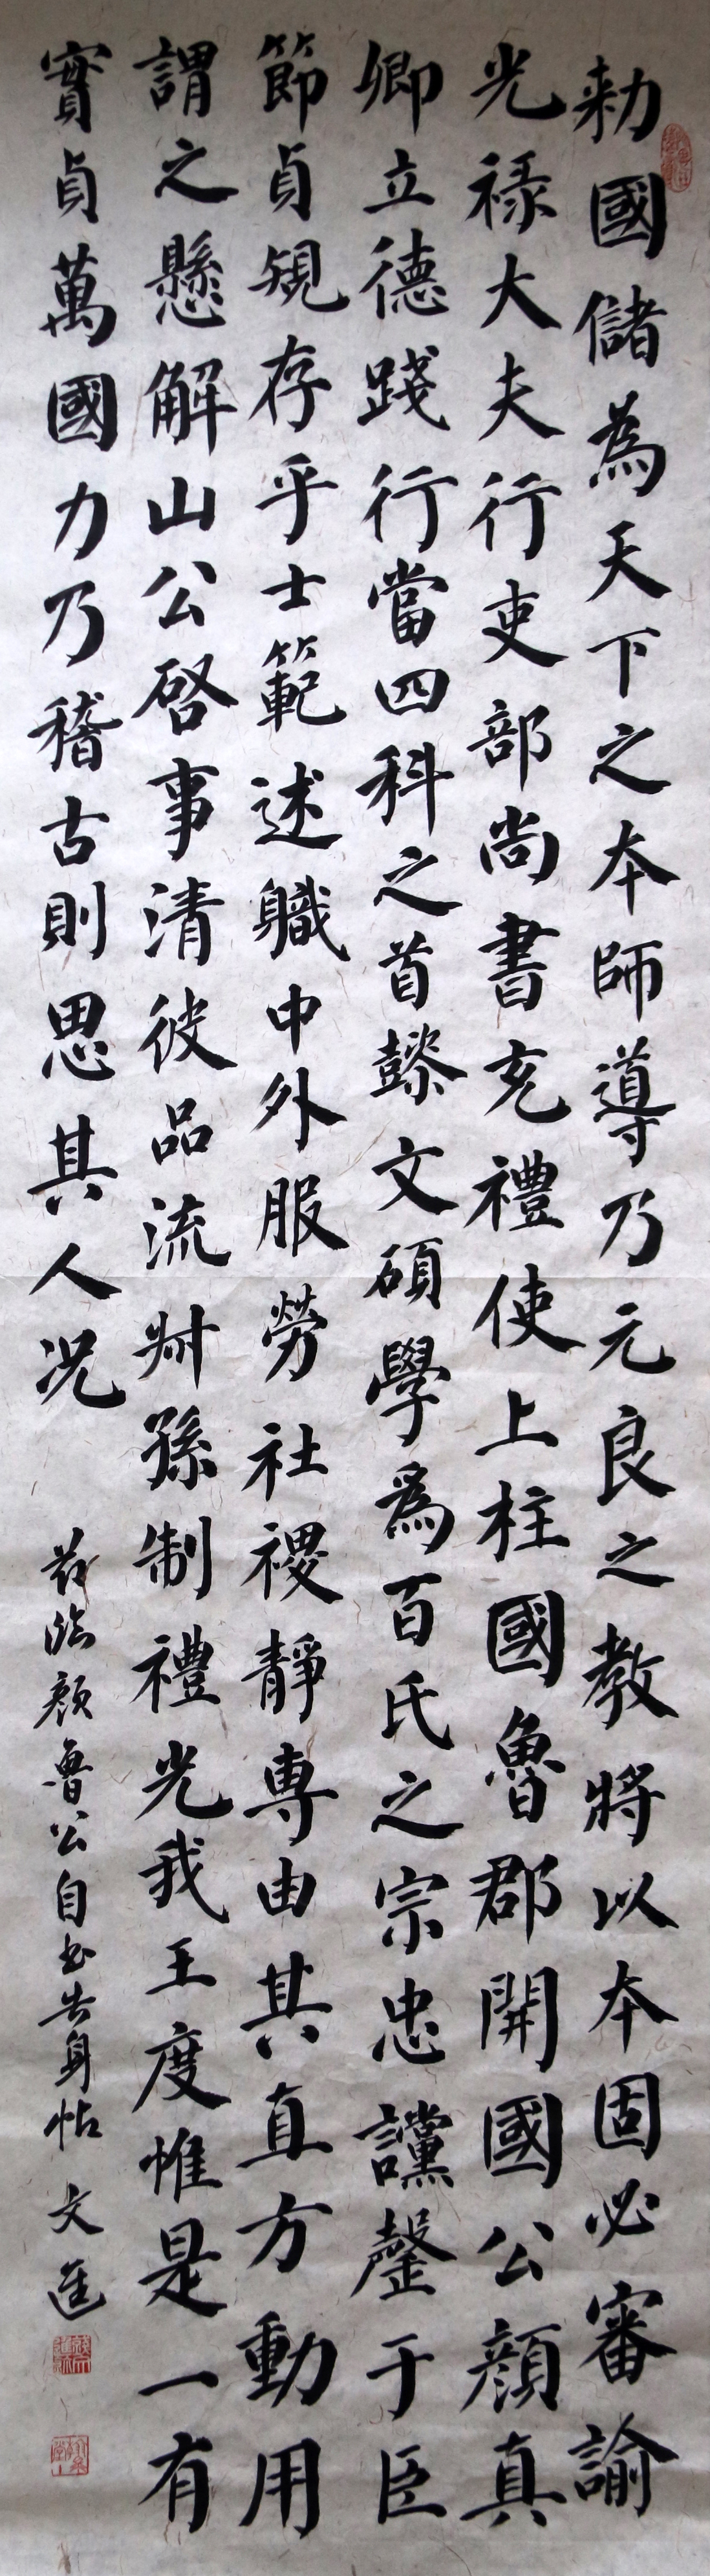 勑國儲為天下之夲師導乃元良之教將以夲固必審諭
光禄大夫行吏部尚書充禮使上柱國魯郡開國公顔真
卿立德踐行當四科之首懿文碩學爲百氏之宗忠讜罄于臣
節貞䂓存乎士範述軄中外服勞社稷靜專由其直方動用
謂之懸解山公啓事清彼品流叔孫制禮光我王度惟是一有
實貞萬國力乃稽古則思其人况
茲臨顏魯公自書告身帖 文進